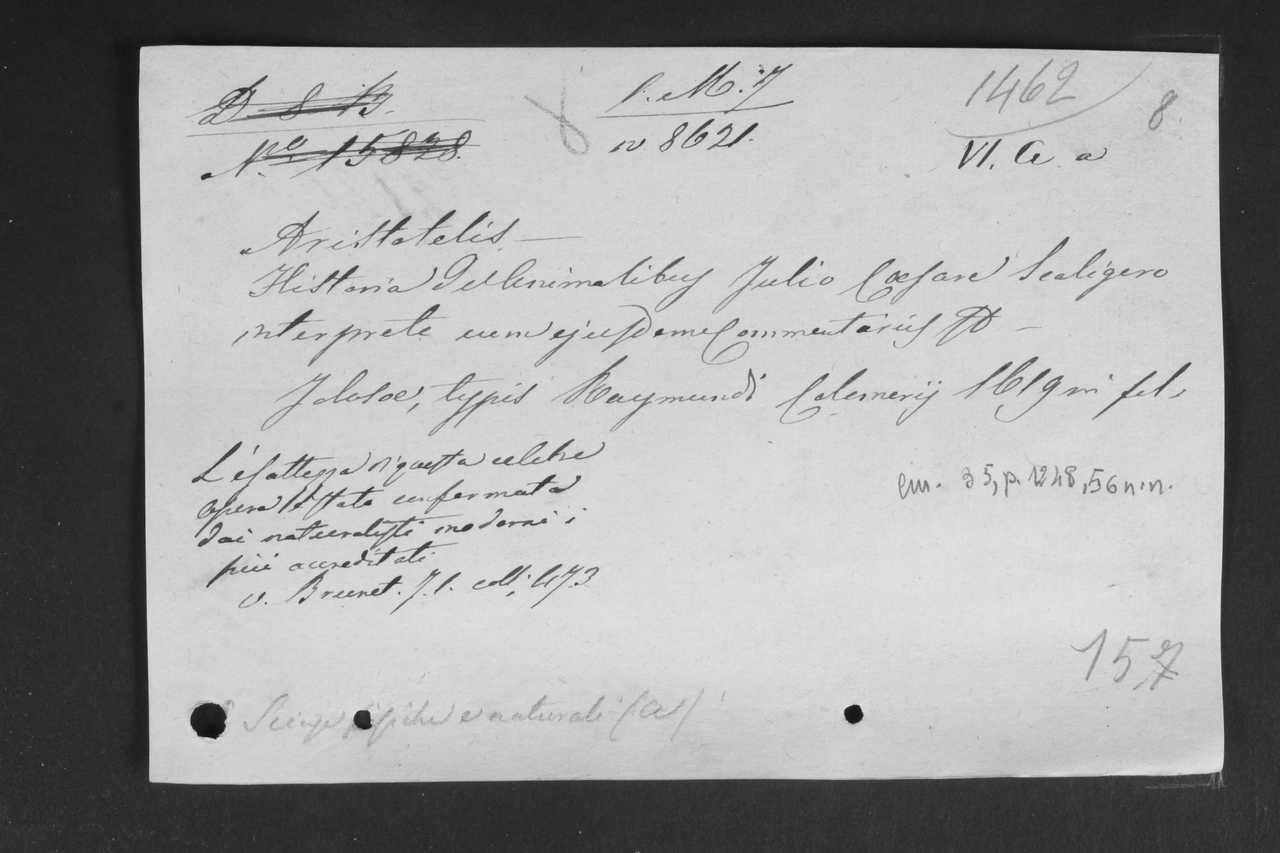 D 8 B.
Nº 15828.
1. M. 7
n 8621.
1462
VI. a. a
8.
Aristotelis —
Historia De Animalibus Julio Cæsare Scaligero
interprete cum ejusdem Commentariis —
Tolosæ, typis Raymundi Colomerij 1619 in fol.
L'esattezza di questa celebre
opera è stata confermata
dai naturalisti moderni i
più accreditati
v. Brunet. T. 1. coll. 473
cm. 35, p. 1248, 56 n.n.
157
Scienze fisiche e naturali (a)